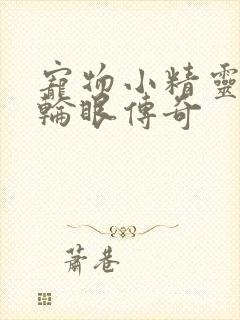 寵物小精靈
輪眼傳奇
蕭巷